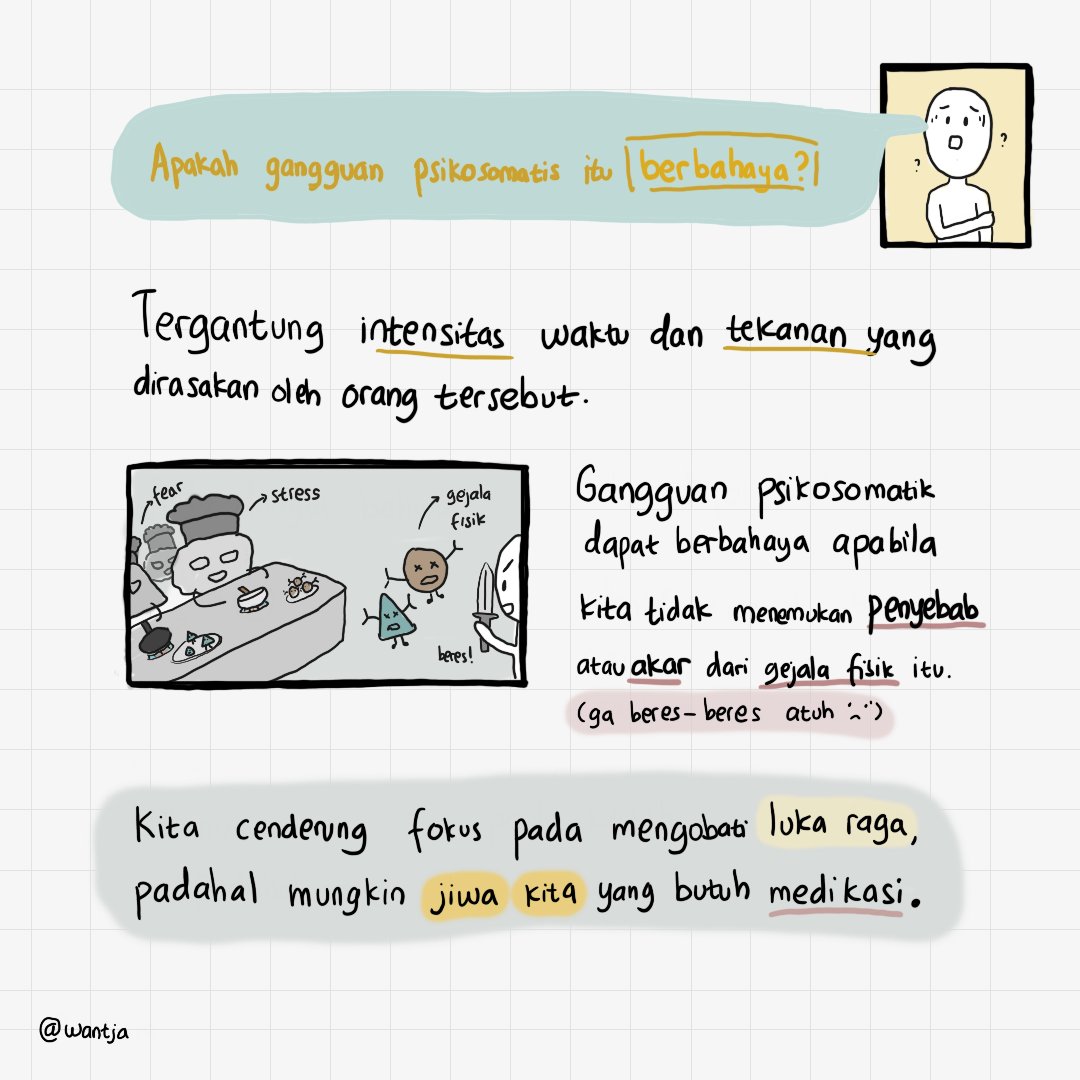 Apakah gangguan psikosomatis itu |berbahaya?|
?
?
Tergantung intensitas waktu dan tekanan yang
dirasakan oleh orang tersebut.
fear
stress
gejala
fisik
beres!
Gangguan psikosomatik
dapat berbahaya apabila
kita tidak menemukan penyebab
atau akar dari gejala fisik itu.
(ga beres-beres atuh :⌢")
Kita cenderung fokus pada mengobati luka raga,
padahal mungkin jiwa kita yang butuh medikasi.
@wantja